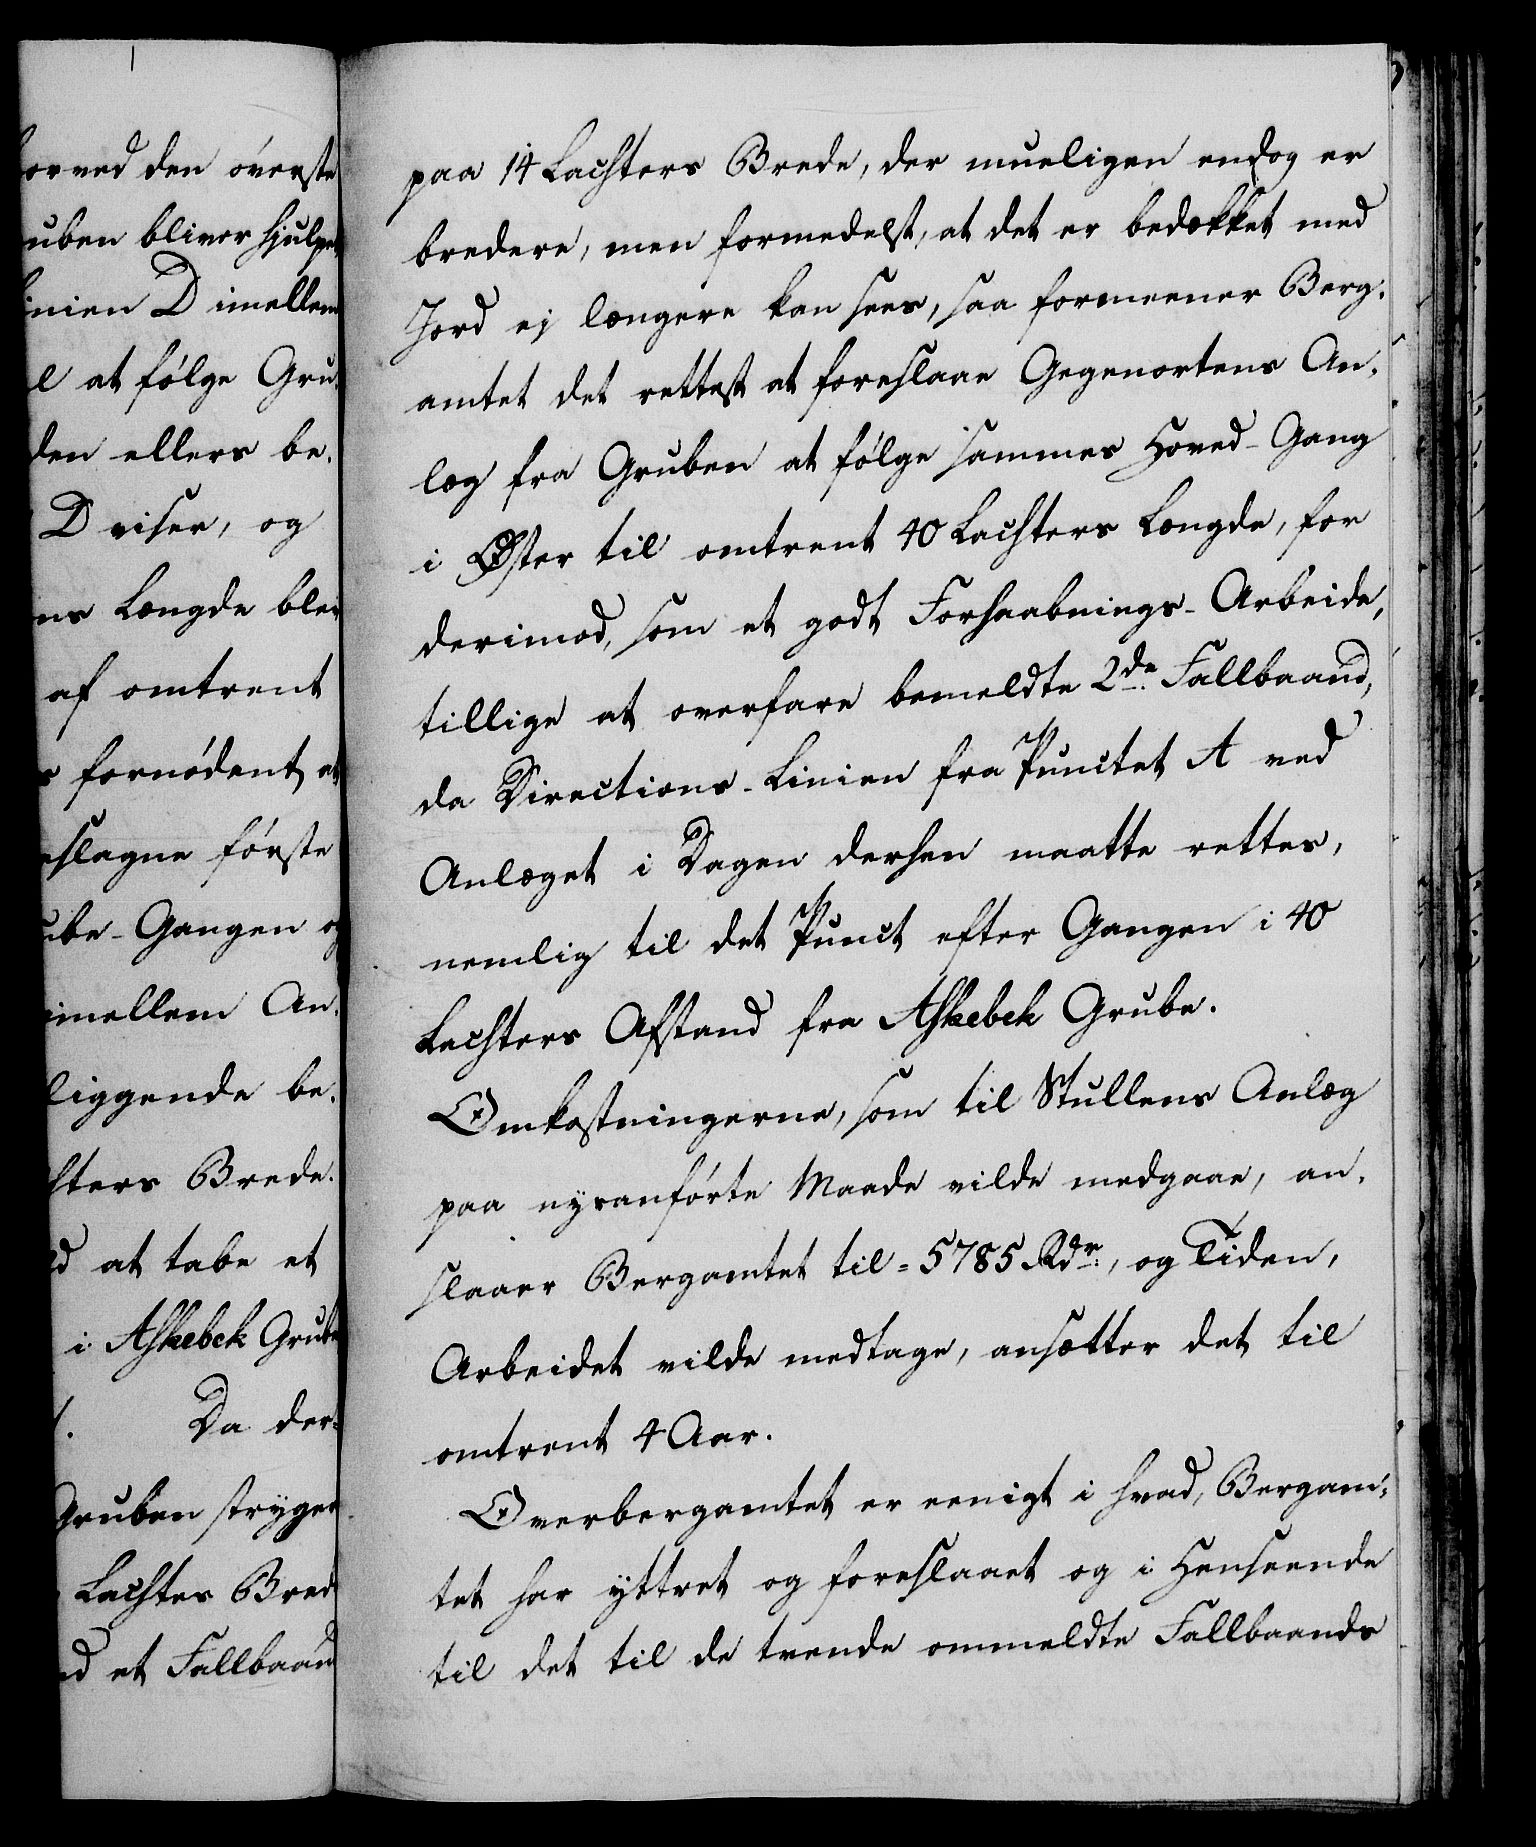 orved den överste
uben bliver hjulpen
inien D imellem
l at følge Gru¬
den ellers be¬
D viser, og
ns Længde blev
af omtrent
s fornødent, at
eslagne første
ube-Gangen og
imellem An¬
liggende be¬
hters Brede.
ld at tabe et
i Askebek Grube
Da der¬
Gruben stryger
Lachter Bred
ed et Fallbaand
paa 14 Lachters Brede, der mueligen endog er
bredere, men formedelst, at det er bedækket med
Jord ej længere kan sees, saa formeener Berg¬
amtet det rettest at foreslaae Gegenortens An¬
læg fra Gruben at følge sammes Hoved-Gang
i Øster til omtrent 40 Lachters Længde, for
derimod, som et godt Forhaabnings-Arbeide,
tillige at overfare bemeldte 2de. Fallbaand,
da Directions-Linien fra Punctet A ved
Anlæget i Dagen derhen maatte rettes,
nemlig til det Punct efter Gangen i 40
Lachters Afstand fra Askebek Grube.
Omkostningerne, som til Stullens Anlæg
paa nysanførte Maade vilde medgaae, an¬
slaaer Bergamtet til = 5785 Rdr., og Tiden,
Arbeidet vilde medtage, ansætter det til
omtrent 4 Aar.
Overbergamtet er eenigt i hvad, Bergam¬
tet har yttret og foreslaaet og i Henseende
til det til de tvende ommeldte Fallbaands